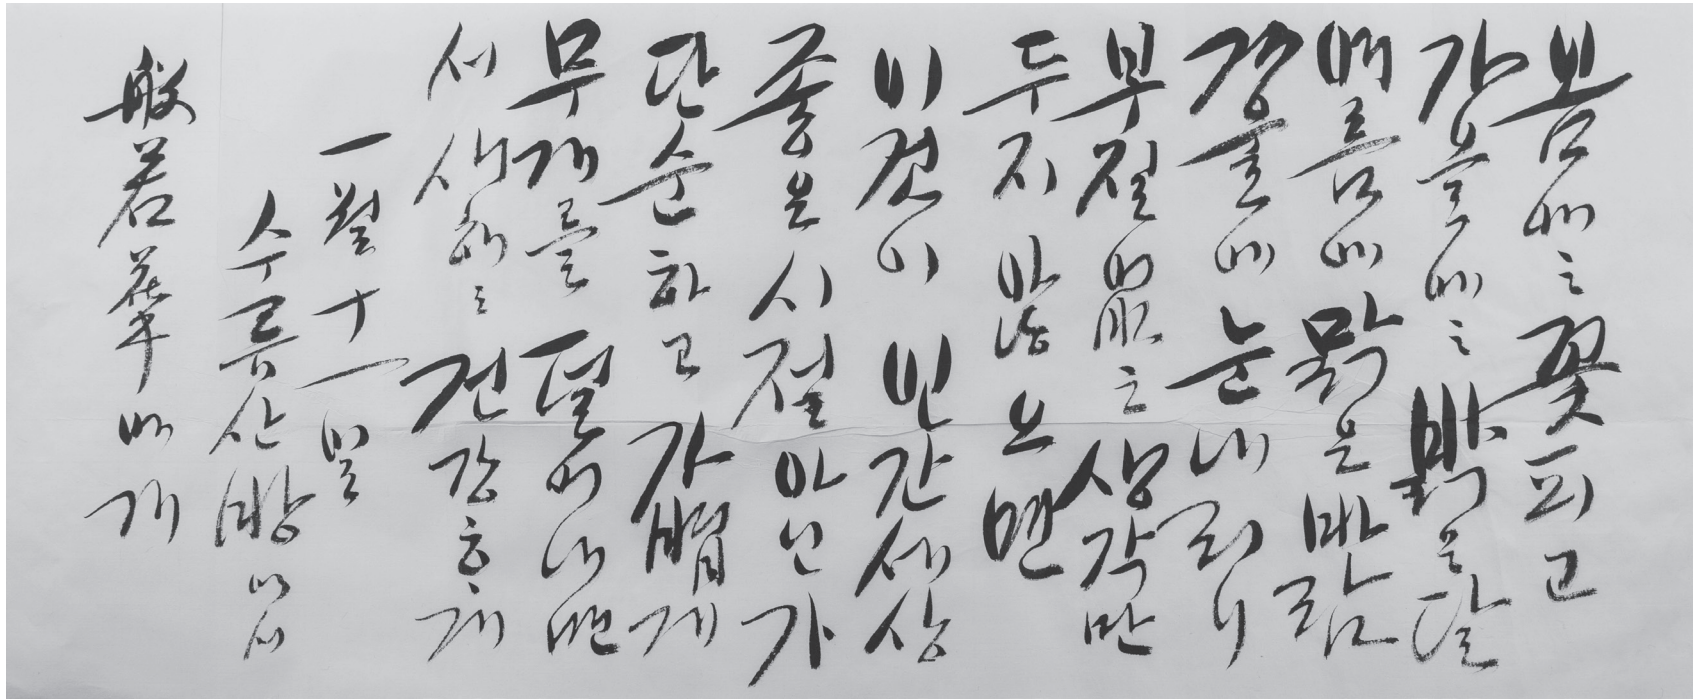 봄에는 꽃피고
가을에는 밝은달
여름에 맑은 바람
겨울에 눈내리니
부질없는 생각만
두지 않으면
이것이 인간세상
좋은 시절 아닌가
단순하고 가볍게
무게를 덜어내면
서 새해는 건강하게
一월 十一일
수류산방에서
般若華에게